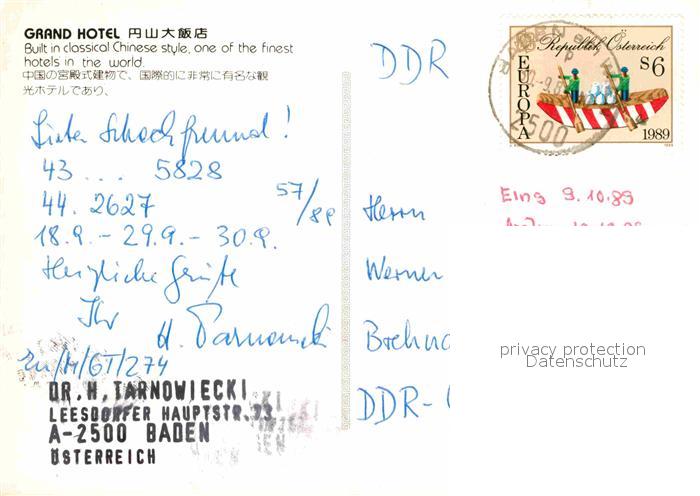 GRAND HOTEL 円山大飯店
Built in classical Chinese style, one of the finest
hotels in the world.
中国の宮殿式建物で、国際的に非常に有名な観
光ホテルであり、
Lieber Schachfreund!
43 ... 5828
44. 2627
57/89
18.9. - 29.9. - 30.9.
Herzliche Grüße
Ihr H. Tarnowiecki
DR.H.TARNOWIECKI
LEESDORFER HAUPTSTR.73
A-2500 BADEN
ÖSTERREICH
DDR
Republik Österreich
EUROPA
S6
1989
2500
Eing 9.10.89
Herrn
Werner
DDR-
privacy protection
Datenschutz